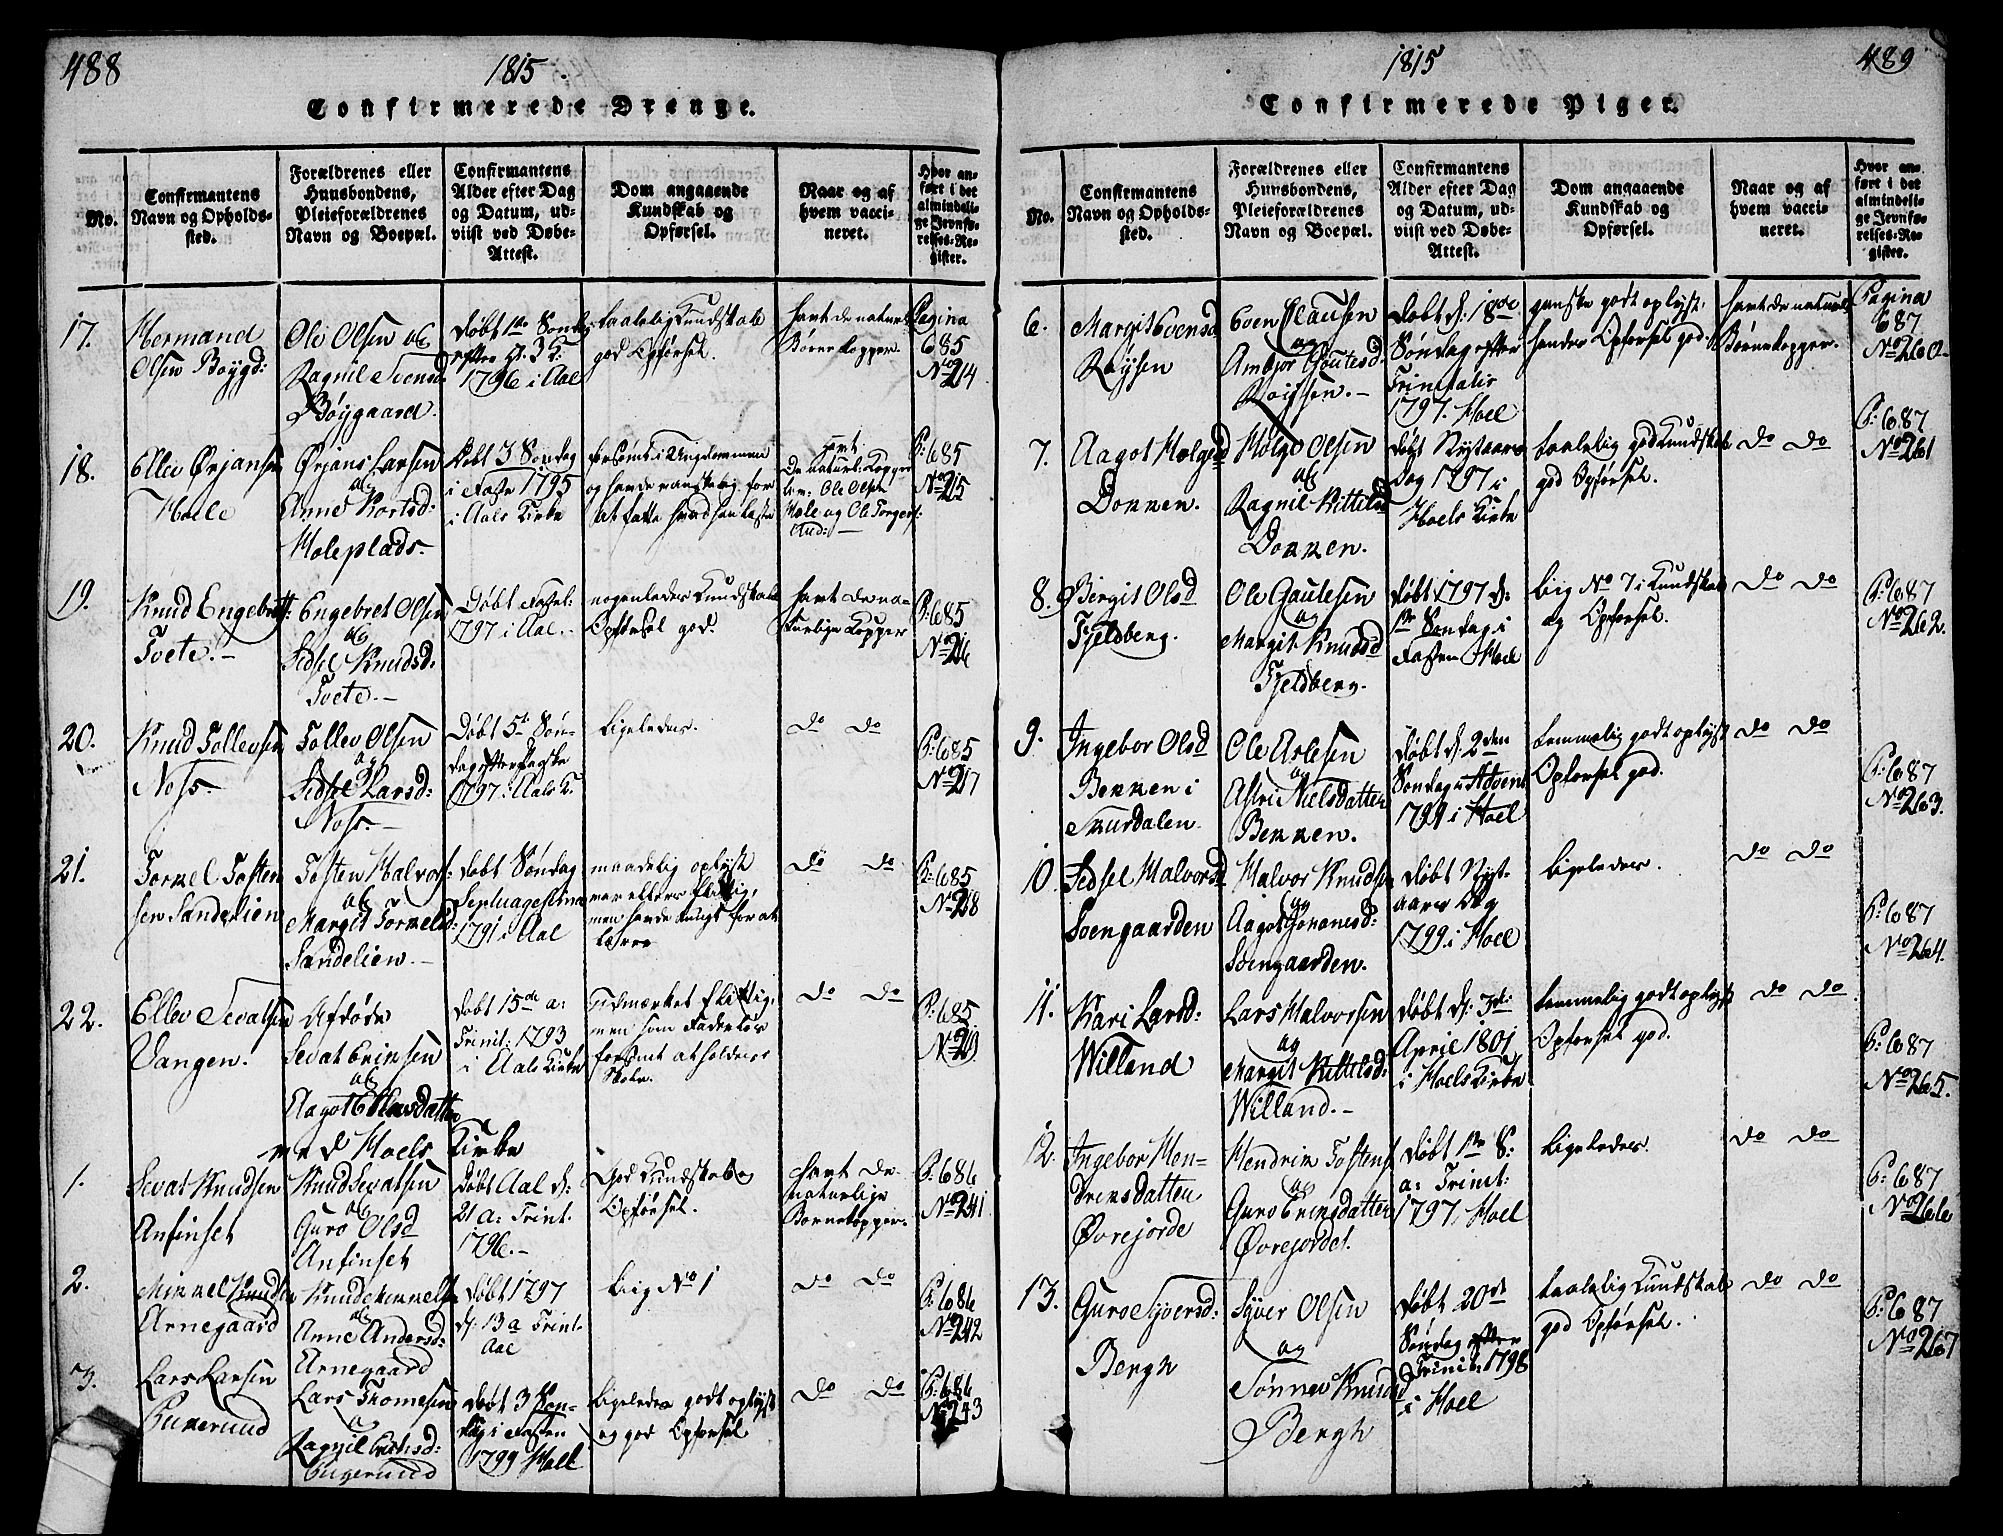 488
1815
Confirmerede Drenge.
No.
Confirmantens Navn og Opholds-sted.
Forældrenes eller Huusbondens, Pleieforældrenes Navn og Boepæl.
Confirmantens Alder efter Dag og Datum, ud-viist ved Døbe-Attest.
Dom angaaende Kundskab og Opførsel.
Naar og af hvem vacci-neret.
Hvor an-ført i det almindeli-ge Jevnfø-relses-Re-gister.
17.
Hermand
Olsen Bøygd:
Ole Olsen og
Ragnil Svensd
Bøygaard.
Døbt 1te Søndag
efter H. 3 K.
1796 i Aal
taalelig Kundskab
god Opførsel.
havt de naturl
Børnekopper.
Pagina
685
No 214
18.
Ellev Ørjansen
Hole
Ørjans Larsen
og
Anne Kortsd:
Holeplads.
døbt 3 Søndag
i Faste 1795
i Aals Kirke
havt
De naturl. Kopper
Ole Olsen
Hole og Ole Torgers:
P: 685
No 215
19.
Knud Engebretss:
Tvete.
Engebret Olsen
og
Sidsel Knudsd:
Tvete.
Døbt Fastel:
1797 i Aal.
nogenledes Kundskab
Opførsel god.
havt de na-
turlige Kopper
P: 685
No 216
20.
Knud Tollevsen
Noss.
Tollev Olsen
og
Sidsel Larsd:
Noss.
Døbt 5te Søn-
dag efter Paaske
1797. Aals K.
ligeledes.
do do
P: 685
No 217
21.
Torkel Tosten
sen Sandelien
Tosten Halvors:
og
Margit Torkelsd:
Sandelien.
døbt Søndag
Septuagesima
1791 i Aal
maadelig oplyst
men havde tungt for at
lære
do do
P: 685
No 218
22.
Ellev Sevatsen
Vangen.
Afdøde
Sevat Eriksen
og
Aagot Ellevsdatter
Døbt 15de a:
Trinit: 1793
i Aals Kirke
men som Faderløs
forsømt at holdes i
Skole.
do do
P: 685
No 219
ved Hoels Kirke
1.
Sevat Knudsen
Anfinset
Knud Sevatsen
og
Guro Olsd
Anfinset
Døbt Aal d:
21 a: Trint.
1796.
God Kundskab og
Opførsel.
havt de
naturlige
Børnekopper.
P: 686
No 241
2.
Mikkel Knudsen
Arnegaard
Knud Mikkelsen
og
Anne Andersd:
Arnegaard
døbt 1797
d: 13 a Trint.
Aal
liig No 1
do do
P: 686
No 242
3.
Lars Larsen
Pukerud
Lars Thomesen
og
Ragnil Erichsd:
døbt 3 Søn-
dag i Fasten
1799 Hoel
ligeledes godt oplyst
og god Opførsel
do do
P: 686
No 243
1815
489
Confirmerede Piger.
No.
Confirmantens Navn og Opholds-sted.
Forældrenes eller Huusbondens, Pleieforældrenes Navn og Boepæl.
Confirmantens Alder efter Dag og Datum, ud-viist ved Døbe-Attest.
Dom angaaende Kundskab og Opførsel.
Naar og af hvem vacci-neret.
Hvor an-ført i det almindeli-ge Jevnfø-relses-Re-gister.
6.
Margit Svensd
Røysen
Sven Clausen
og
Ambjør Goutesd
Røyssen.
Døbt d: 18de
Søndag efter
Trinitatis
1797. Hoel
ganske godt oplyst,
hendes Opførsel god.
havt de naturl
Børnekopper.
Pagina
687
No 260
7.
Aagot Holgesd
Dokken.
Holge Olsen
og
Ragnil Kittelsd
Dokken.
døbt Nytaars
dag 1797 i
Hoels Kirke
taalelig god Kundskab
god Opførsel.
do do
P: 687
No 261
8.
Birgit Olsd
Fjeldberg.
Ole Gautesen
og
Margit Knudsd
Fjeldberg.
døbt 1797 d:
1te Søndag i
Fasten Hoel
liig No 7 i Kundskab
og Opførsel.
do do
P: 687
No 262.
9.
Ingebor Olsd
Bekken i
Skurdalen
Ole Aslesen
og
Astri Nielsdatter
Bekken.
døbt d: 2den
Søndag Advent
1799 i Hoel
temmelig godt oplyst
Opførsel god.
do do
P: 687
No 263.
10.
Sidsel Halvorsd
Svengaarden
Halvor Knudsen
og
Aagot Johanesd:
Svengaarden.
døbt Nyt-
aars Dag
1799 i Hoel
ligeledes.
do do
P: 687
No 264.
11.
Kari Larsd:
Willand
Lars Halvorsen
og
Margit Kittelsd:
Willand.
døbt d: 3de
April 1801
i Hoels Kirke
temmelig godt oplyst
Opførsel god.
do do
P: 687
No 265.
12.
Ingebor Hen-
driksdatter
Øvrejorde
Hendrik Tostens:
og
Guro Eriksdatter
Øvrejordet.
døbt 1te S:
a: Trinit:
1797. Hoel
ligeledes.
do do
P: 687
No 266
13.
Guro Syversd:
Bergh
Syver Olsen
og
Sønnev Knudsd
Bergh
døbt 20de
Søndag efter
Trinit: 1798
i Hoel
taalelig Kundskab
god Opførsel.
do do
P: 687
No 267